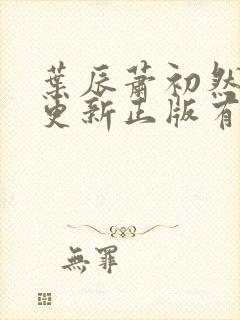 葉辰蕭初然
更新正版有
無罪